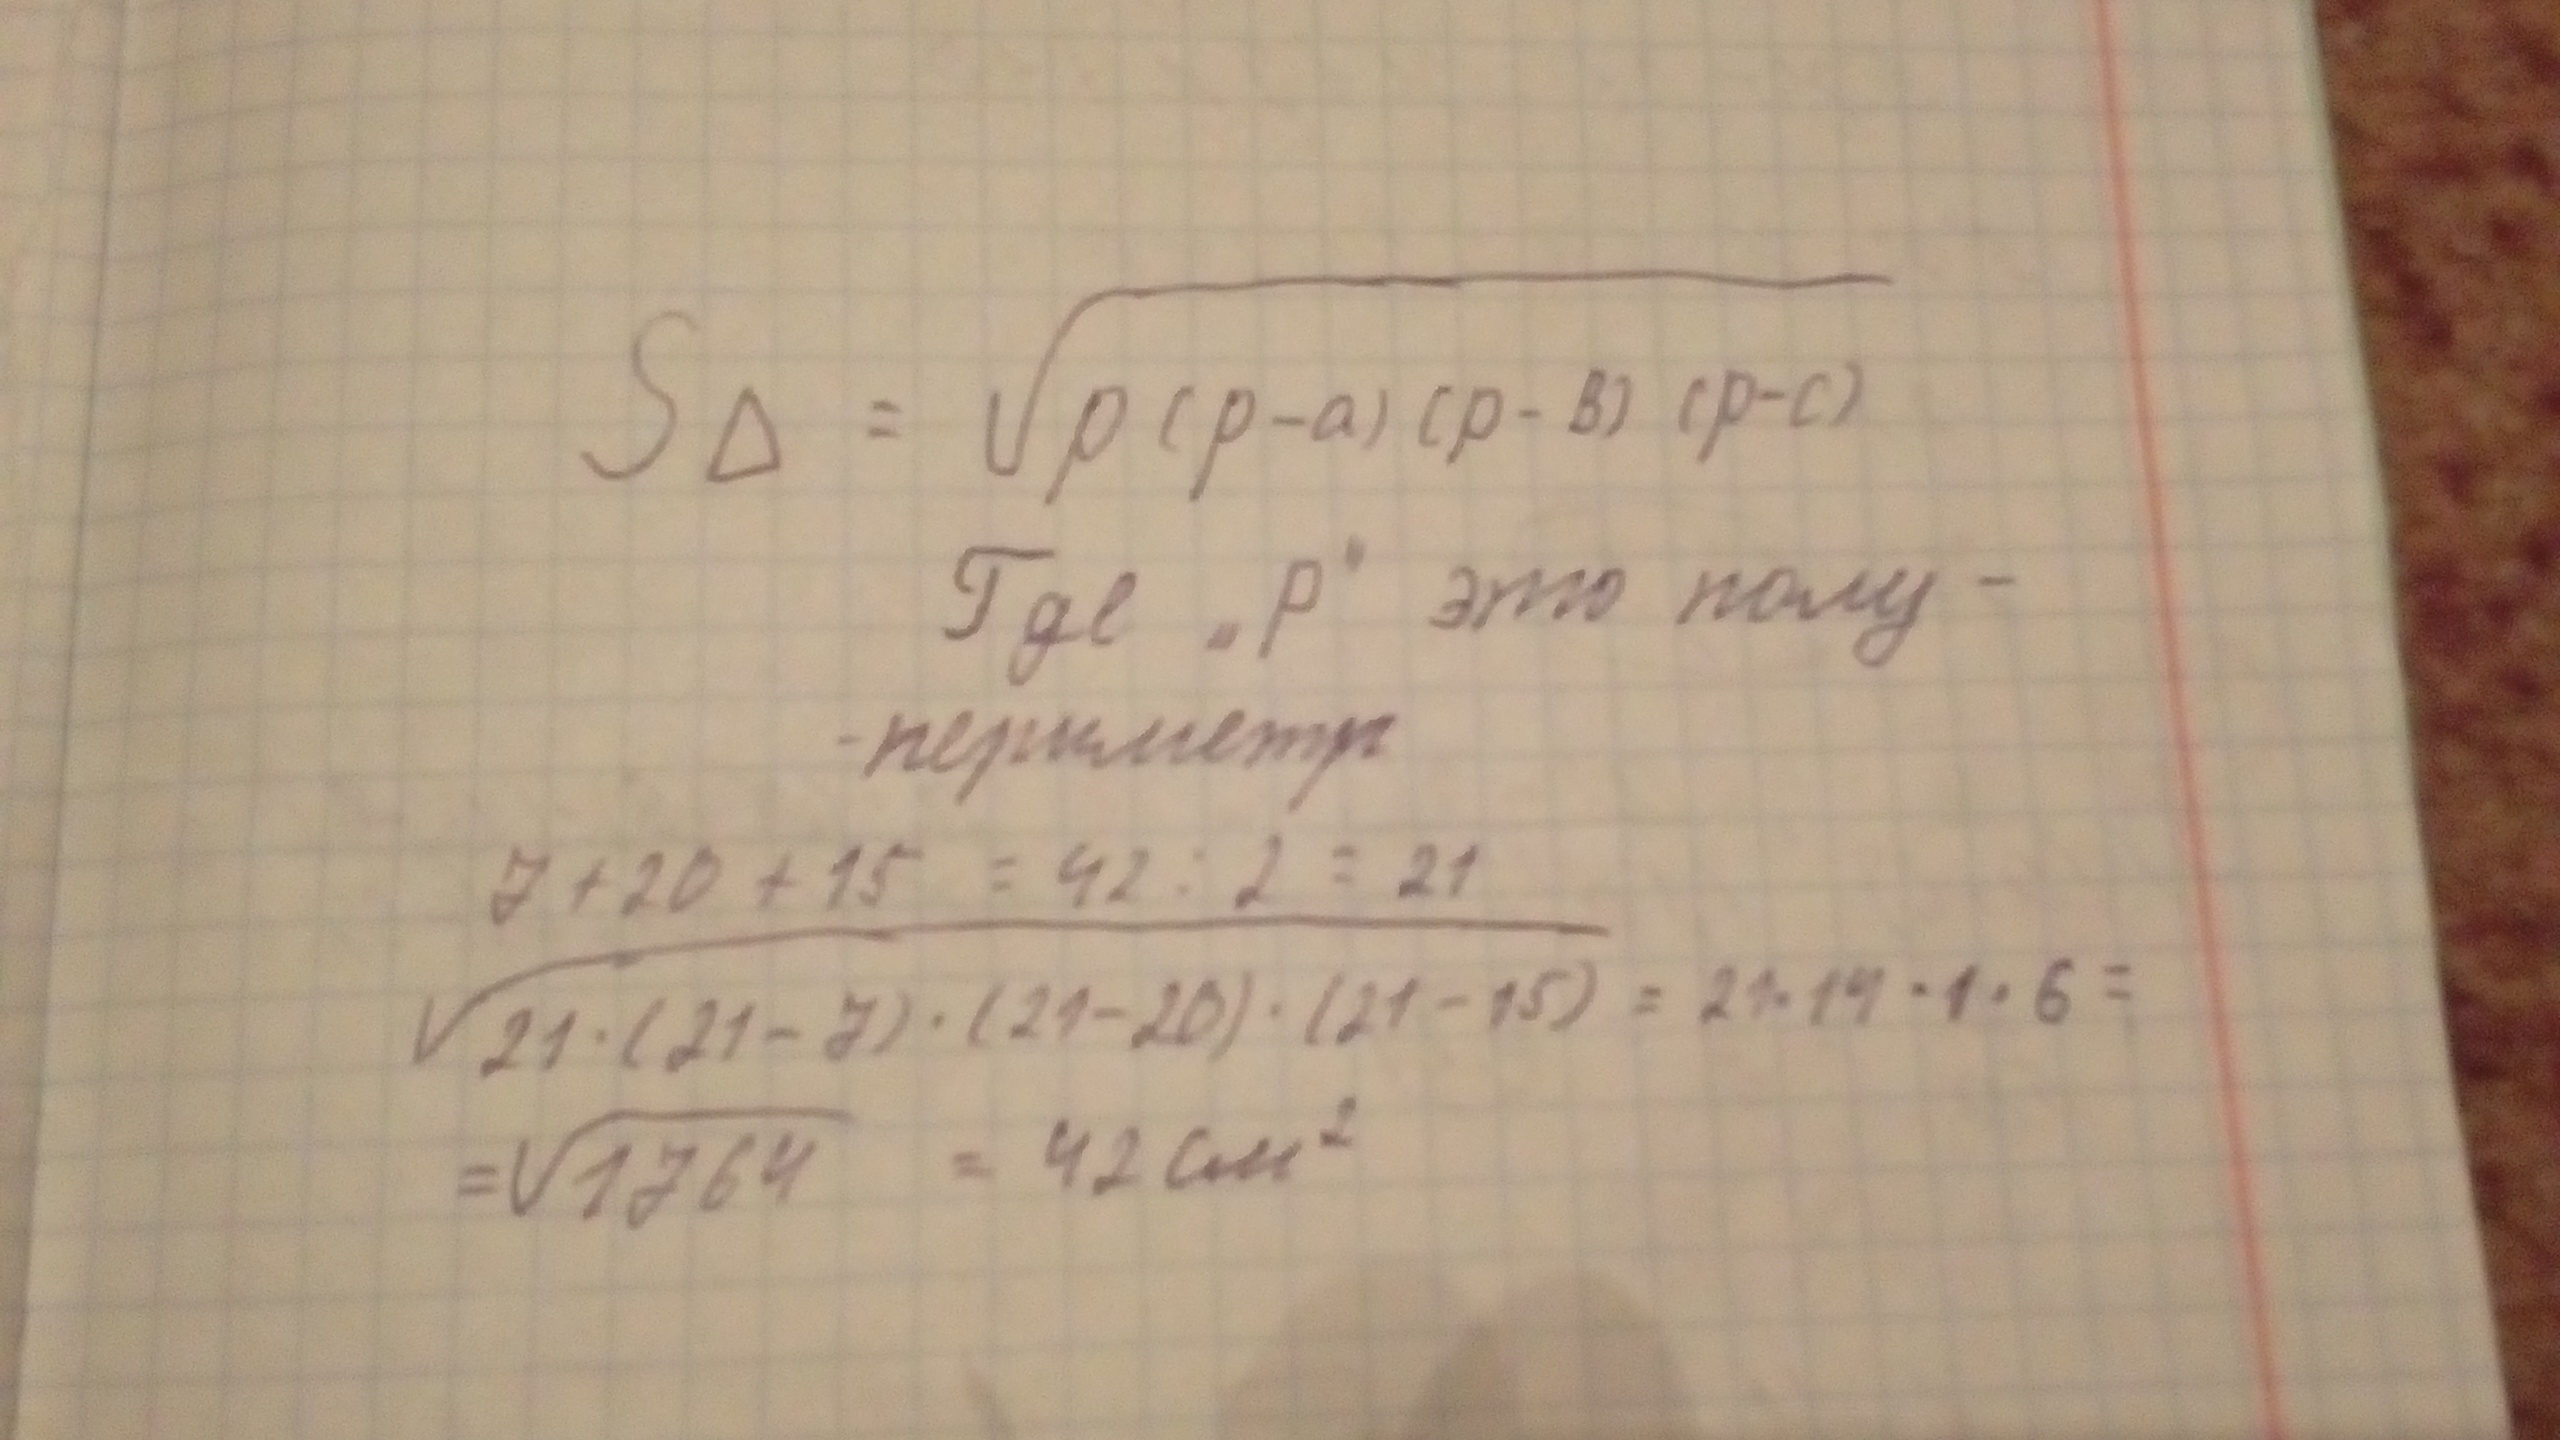 S△ = √p(p-a)(p-в)(p-c)
Где „P“ это полу-
-периметр
7+20+15 = 42 : 2 = 21
√21·(21-7)·(21-20)·(21-15) = 21·14·1·6=
=√1764 = 42см²